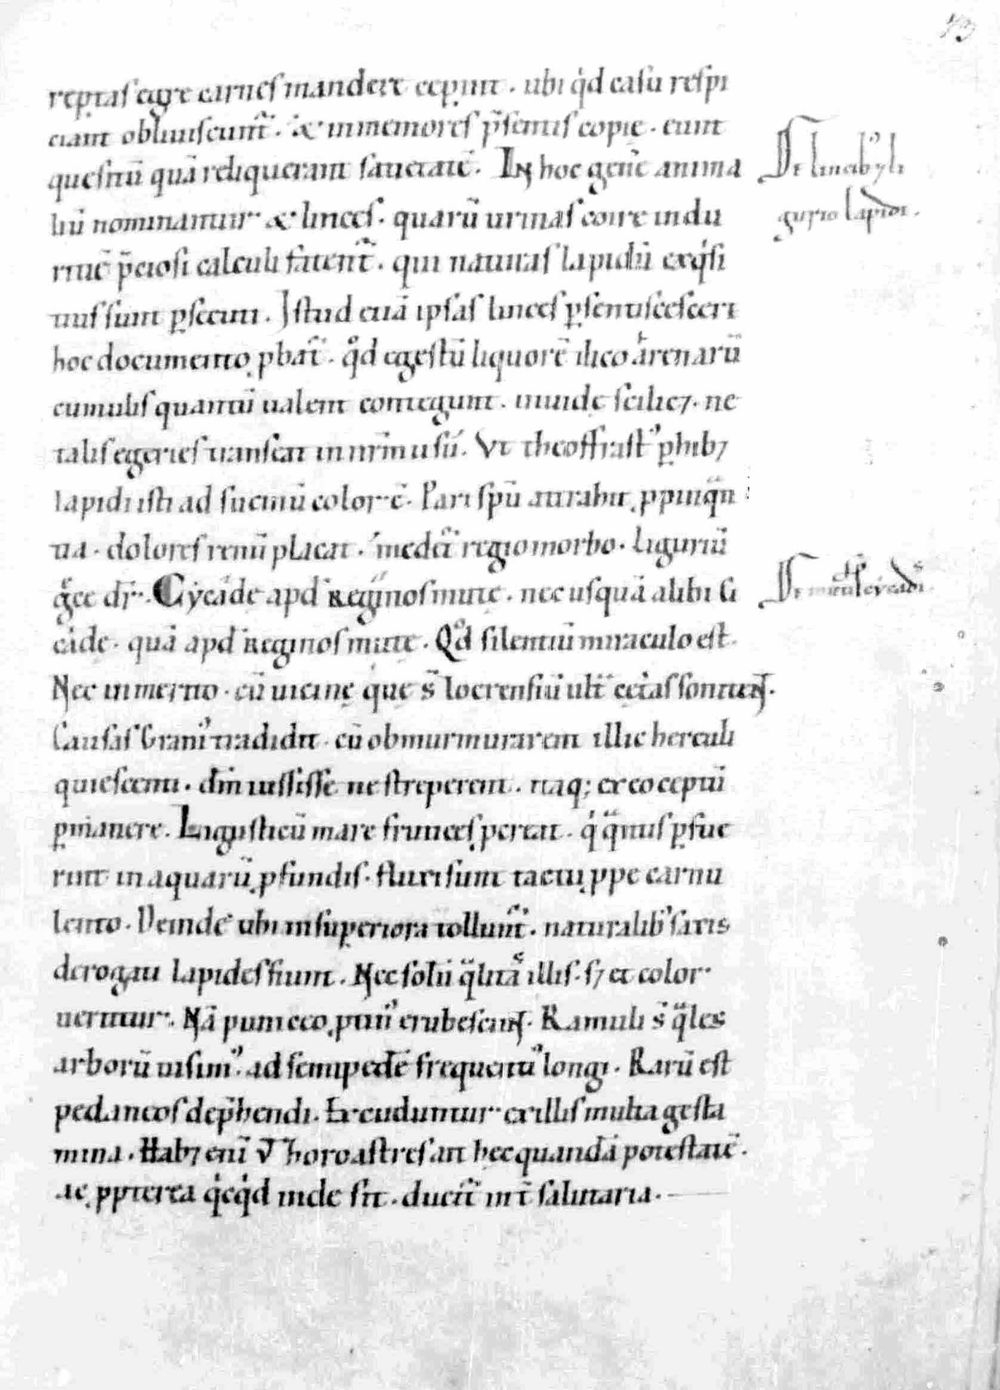 73
reptas egre carnes mandere ceperint · ubi q̇d casu respi
ciant obliuiscunt̄ · & inmemores p̄sentis copie · eunt
quesitū quā reliquerant sacietatē · In hoc gen̄e anima
liū nominantur & linces · quarū urinas coire in du
ritiē p̄ciosi calculi fatent̄ · qui naturas lapidū exq̇si
tius sunt p̱secuti · Istud etiā ipsas linces p̱sentiscescere
hoc documento ꝓbat̄ · qd̊ egestū liquorē ilico arenarū
cumulis quantū ualent contegunt · inuide scilicꝫ · ne
talis egeries transeat in nr̄m usū · Vt theoffrast᾽ p̱hibꝫ
lapidi isti ad sucinū color ē · Pari sp̄u attrahit ꝓpinqᵃn
tia · dolores renū placat · medet̄ regio morbo · Liguriū
g̊ce dr̄ · Cycade apd̄ reginos mute · nec usquā alibi si
cade · quā apd̄ reginos mute · Qd̊ silentiū miraculo est ·
Nec inmerito · cū uicinę que s̄ locrensiū ult̄ cet̄as sonent ·
Causas Grani᾽ tradidit · cū obmurmurarent illic herculi
quiescenti · dm̄ iussisse ne streperent · itaq; ex eo ceptū
p̱manere · Ligusticū mare frutices ꝓcreat · q̇ qᵃntus p̱fue
rint in aquarū ꝓfundis · fluxi sunt tactu ꝓpe carnu
lento · Deinde ubi in superiora tollunt̄ · naturalib᾽ saxis
derogati lapides fiunt · Nec solū qᵃlitas illis · sꝫ et color
uertitur · Nā puniceo ꝓtin᾽ erubescunt · Ramuli s̄ qᵃles
arborū uisim᾽ · ad semipedē frequentī᾽ longi · Rarū est
pedaneos dep̄hendi · Excuduntur ex illis multa gesta
mina · Habꝫ eni᾽ ut Zoroastres ait hec quandā potestatē ·
ac ꝓpterea q̇cq̇d inde sit · ducit̄ int̄ salutaria ·
De lincib᾽ ꝫ li
gurio lapide ·